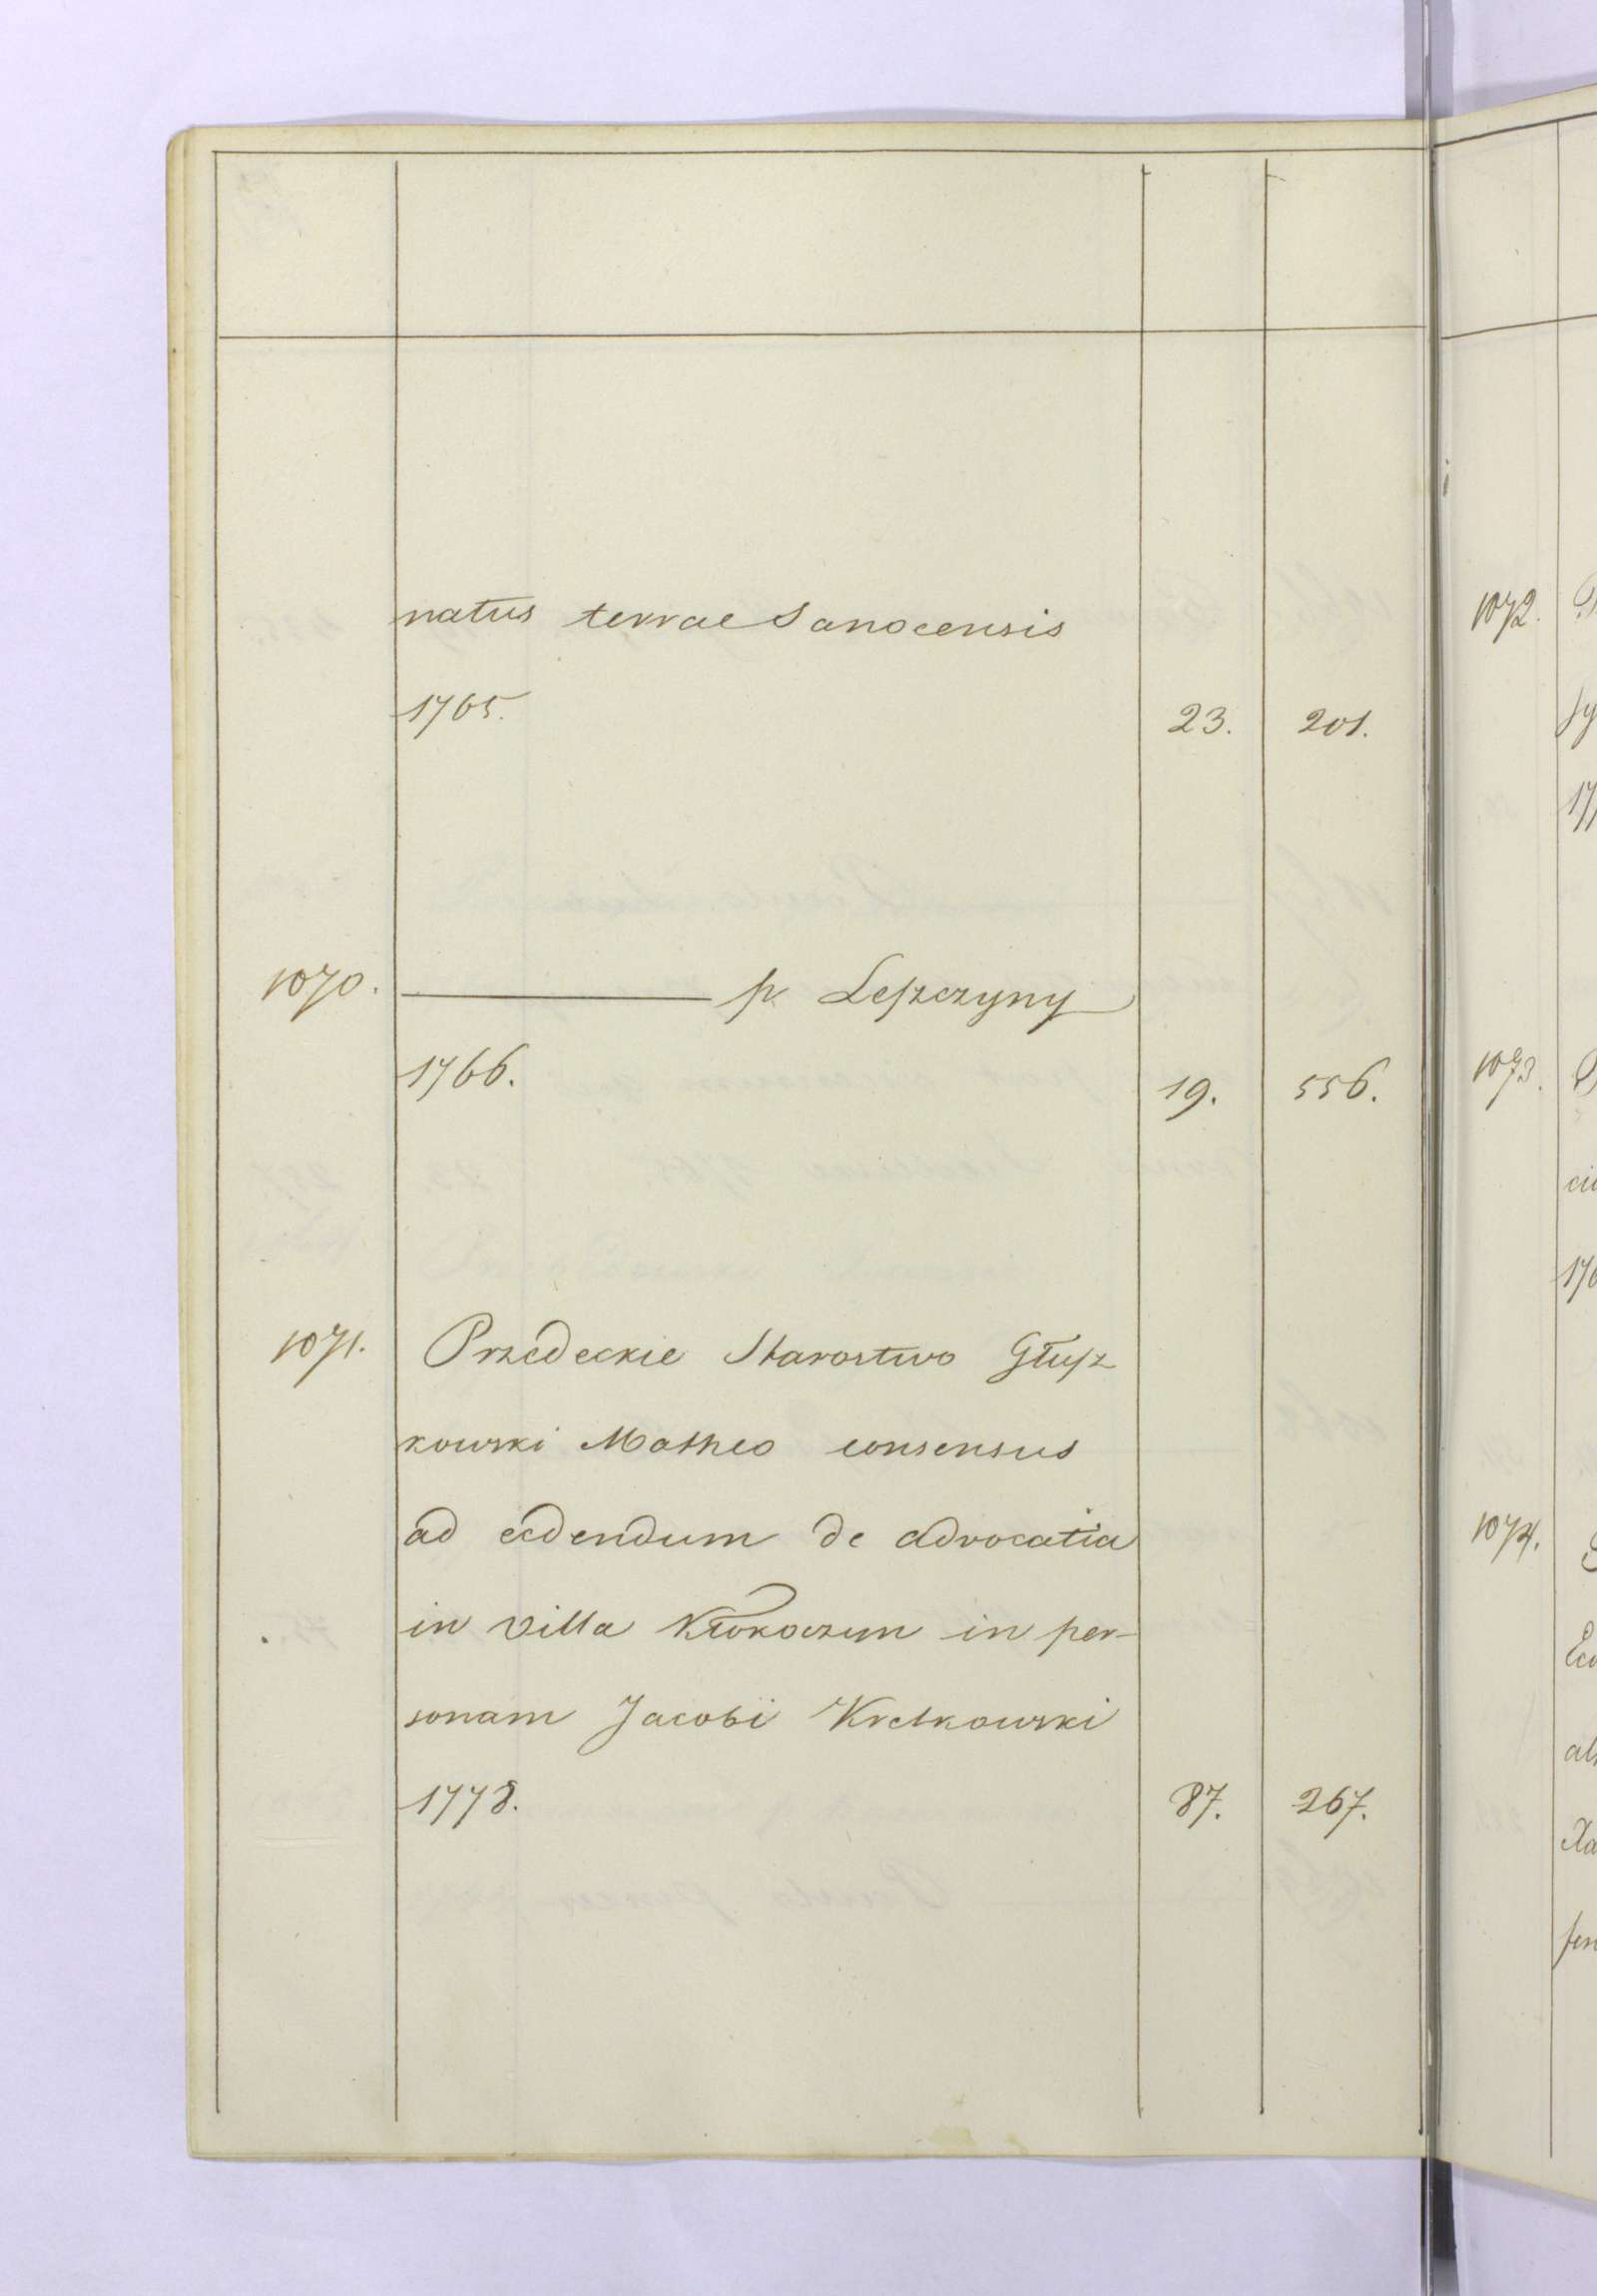 natus terrae Sanocensis
1765. 23. 201.
1070. ——— p. Leszczyny
1766. 19. 556.
1071. Przedeckie Starostwo Głusz
kowski Matheo consensus
ad cedendum de advocatia
in villa Kłokoczyn in per-
sonam Jacobi Kretkowski
1778. 87. 267.
1072.
1073.
1074.